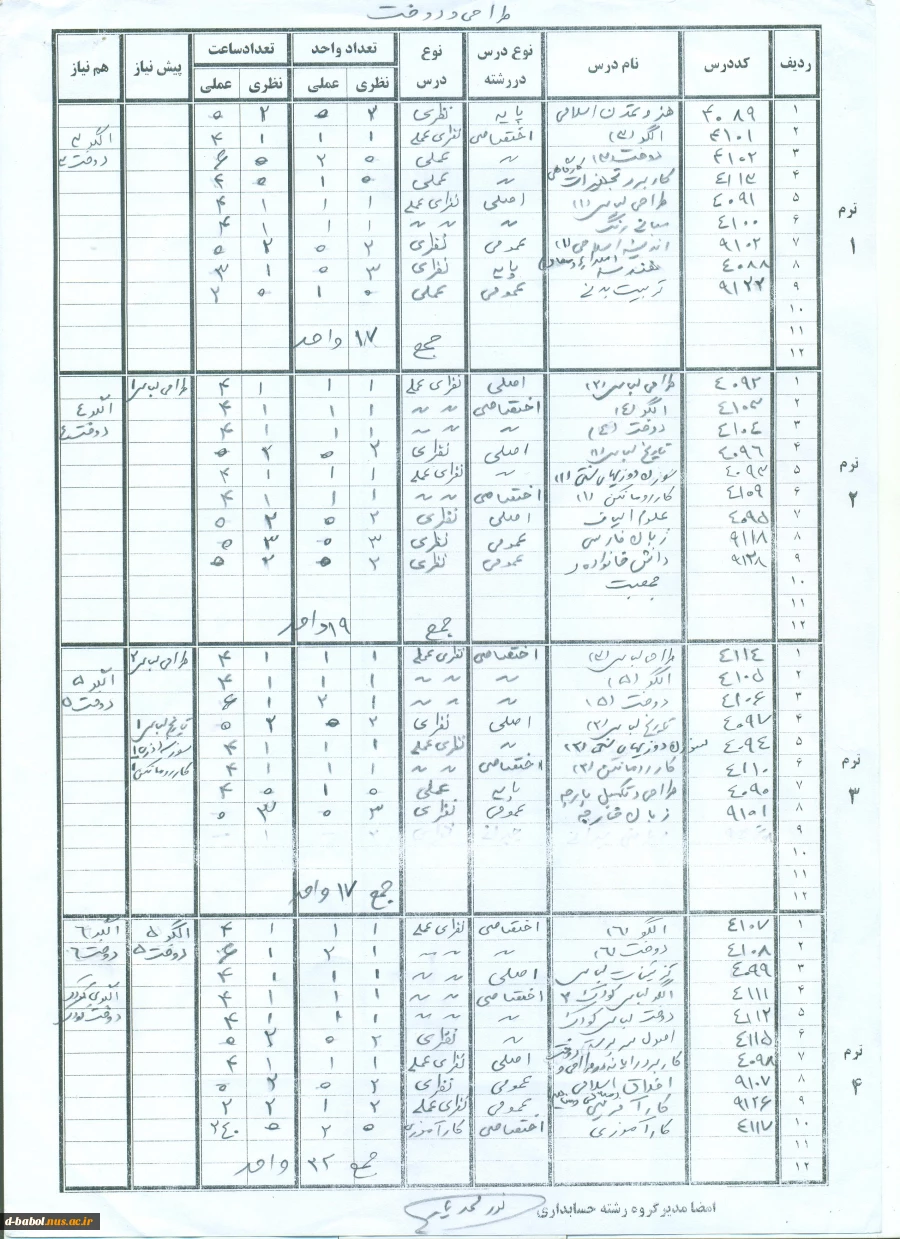 طراحی و دوخت
ردیف کددرس نام درس نوع درس دررشته نوع درس تعداد واحد تعدادساعت پیش نیاز هم نیاز
نظری عملی نظری عملی
ترم ۱
۱ ۴۰۸۹ هنر و تمدن اسلامی پایه نظری ۲ ۰ ۲ ۰
۲ ۴۱۰۱ الگو (۳) اختصاصی نظری عملی ۱ ۱ ۱ ۴ الگو ۳
۳ ۴۱۰۲ دوخت (۳) " عملی ۰ ۲ ۰ ۶ دوخت ۳
۴ ۴۱۱۳ کاربرد تجهیزات کارگاهی " عملی ۰ ۱ ۰ ۴
۵ ۴۰۹۱ طراحی لباس (۱) اصلی نظری عملی ۱ ۱ ۱ ۴
۶ ۴۱۰۰ مبانی رنگ " " " ۱ ۱ ۱ ۴
۷ ۹۱۰۲ اندیشه اسلامی (۱) عمومی نظری ۲ ۰ ۲ ۰
۸ ۴۰۸۸ هندسه پایه نظری ۳ ۰ ۱ ۳
۹ ۹۱۲۲ تربیت بدنی عمومی عملی ۰ ۱ ۰ ۲
۱۰
۱۱ جمع ۱۷ واحد
۱۲
ترم ۲
۱ ۴۰۹۲ طراحی لباس (۲) اصلی نظری عملی ۱ ۱ ۱ ۴ طراحی لباس ۱
۲ ۴۱۰۳ الگو (۴) اختصاصی " " ۱ ۱ ۱ ۴ الگو ۴
۳ ۴۱۰۴ دوخت (۴) " " " ۱ ۱ ۱ ۴ دوخت ۴
۴ ۴۰۹۶ تاریخ لباس (۱) اصلی نظری ۲ ۰ ۲ ۰
۵ ۴۰۹۳ سوزن دوزیهای سنتی (۱) " نظری عملی ۱ ۱ ۱ ۴
۶ ۴۱۰۹ کار رو مانکن (۱) اختصاصی " " ۱ ۱ ۱ ۴
۷ ۴۰۹۵ علوم الیاف اصلی نظری ۲ ۰ ۲ ۰
۸ ۹۱۱۸ زبان فارسی عمومی نظری ۳ ۰ ۳ ۰
۹ ۹۱۳۸ دانش خانواده و عمومی نظری ۲ ۰ ۲ ۰
۱۰ جمعیت
۱۱
۱۲ جمع ۱۹ واحد
ترم ۳
۱ ۴۱۱۴ طراحی لباس (۳) اختصاصی نظری عملی ۱ ۱ ۱ ۴ طراحی لباس ۲
۲ ۴۱۰۵ الگو (۵) " " " ۱ ۱ ۱ ۴ الگو ۵
۳ ۴۱۰۶ دوخت (۵) " " " ۱ ۲ ۱ ۶ دوخت ۵
۴ ۴۰۹۷ تاریخ لباس (۲) اصلی نظری ۲ ۰ ۲ ۰ تاریخ لباس ۱
۵ ۴۰۹۴ سوزن دوزیهای سنتی (۲) " نظری عملی ۱ ۱ ۱ ۴
۶ ۴۱۱۰ کار رو مانکن (۲) اختصاصی " " ۱ ۱ ۱ ۴ کار رو مانکن ۱
۷ ۴۰۹۰ طراحی و تکمیل پارچه پایه عملی ۰ ۱ ۰ ۴
۸ ۹۱۰۱ زبان خارجه عمومی نظری ۳ ۰ ۳ ۰
۹
۱۰
۱۱
۱۲ جمع ۱۷ واحد
ترم ۴
۱ ۴۱۰۷ الگو (۶) اختصاصی نظری عملی ۱ ۱ ۱ ۴ الگو ۵ الگو ۶
۲ ۴۱۰۸ دوخت (۶) " " " ۱ ۲ ۱ ۶ دوخت ۵ دوخت ۶
۳ ۴۰۹۹ تزئینات لباس اصلی " " ۱ ۱ ۱ ۴
۴ ۴۱۱۱ الگو لباس کودک ۲ اختصاصی " " ۱ ۱ ۱ ۴ الگوی کودک
۵ ۴۱۱۲ دوخت لباس کودک " " " ۱ ۱ ۱ ۴ دوخت کودک
۶ ۴۱۱۵ اصول سرپرستی " نظری ۲ ۰ ۲ ۰
۷ ۴۰۹۸ کاربرد رایانه در طراحی و دوخت اصلی نظری عملی ۱ ۱ ۱ ۴
۸ ۹۱۰۷ اخلاق اسلامی عمومی نظری ۲ ۰ ۲ ۰
۹ ۹۱۲۶ کارآفرینی عمومی نظری عملی ۲ ۱ ۲ ۲
۱۰ ۴۱۱۷ کارآموزی اختصاصی کارآموزی ۰ ۲ ۰ ۲۴۰
۱۱
۱۲ جمع ۲۲ واحد
امضا مدیرگروه رشته حسابداری
d-babol.nus.ac.ir